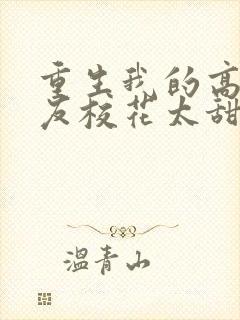 重生我的高
友校花太甜
温青山